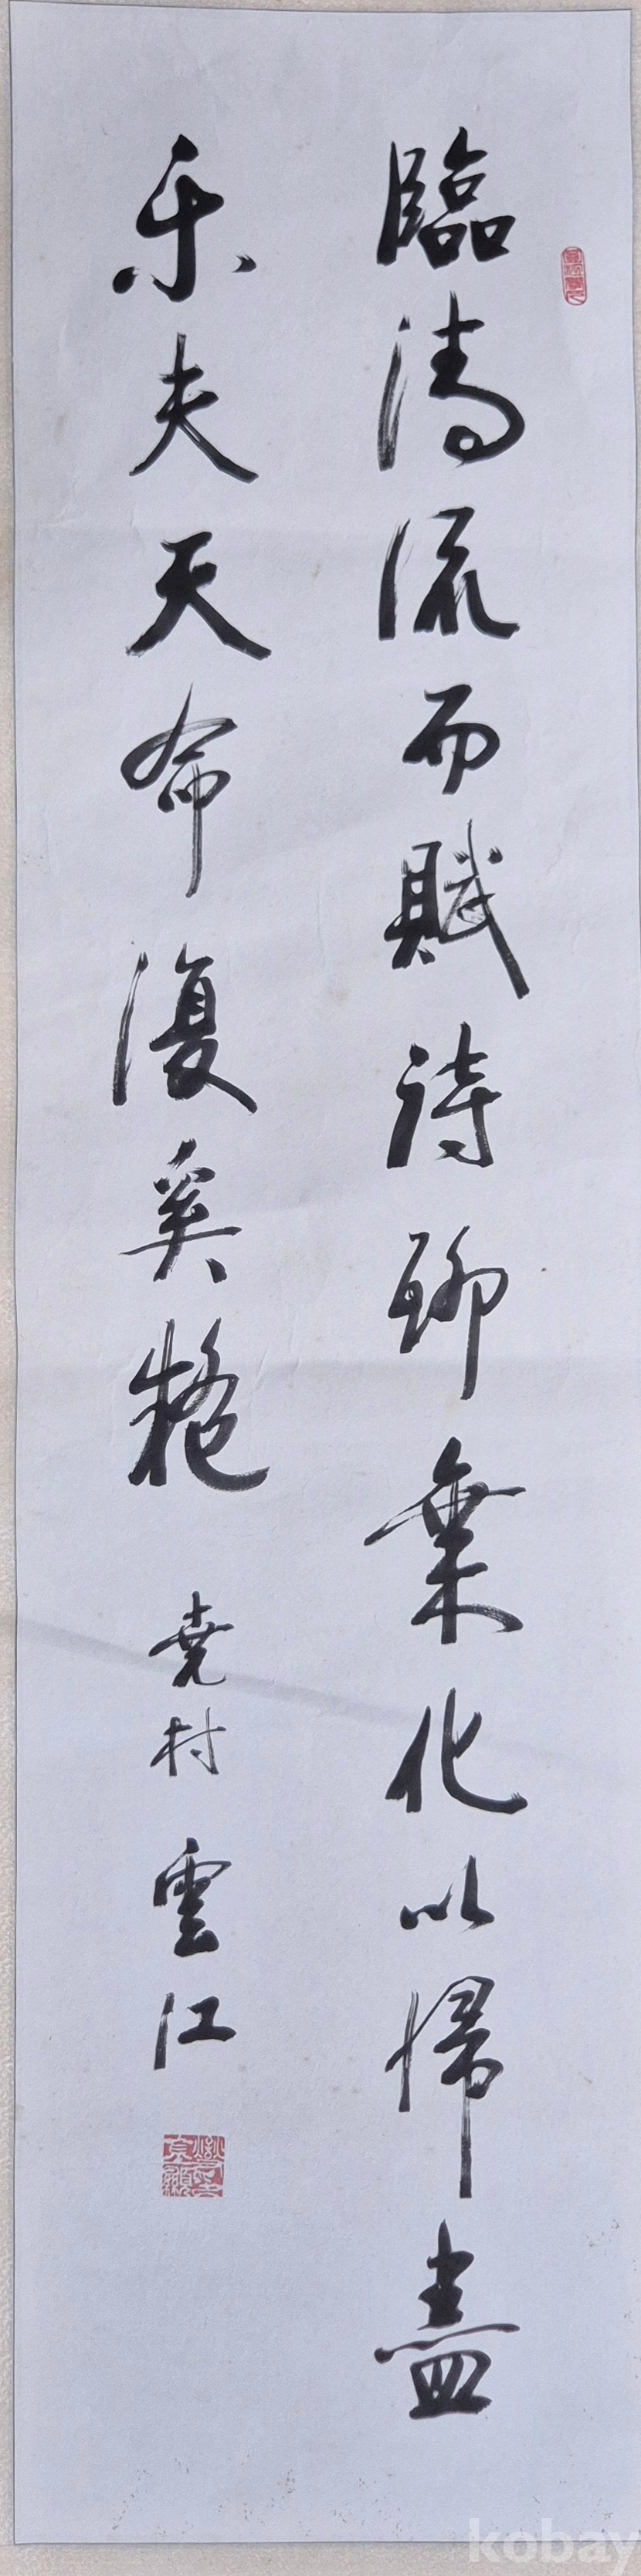 臨清流而賦詩聊乘化以歸盡
乐夫天命復奚疑 堯村 雲江
kobay